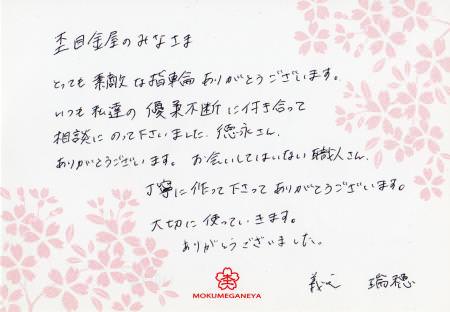 杢目金屋のみなさま
とっても素敵な指輪ありがとうございます。
いつも私達の優柔不断に付き合って
相談にのって下さいました、徳永さん、
ありがとうございます。お会いしてはいない職人さん、
丁寧に作って下さってありがとうございます。
大切に使っていきます。
ありがとうございました。
瑞穂
MOKUMEGANEYA